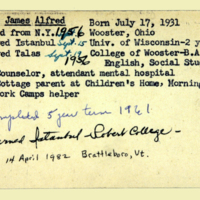 James Alfred Born July 17, 1931
d from N.Y. 1956 Wooster, Ohio
ed Istanbul Sept. 15 Univ. of Wisconsin-2 y
ed Talas Sept. 1956 College of Wooster-B.A
English, Social Stu
ounselor, attendant mental hospital
ottage parent at Children's Home, Morning
ork Camps helper
mpleted 5 year term 1961.
rned Istanbul - Robert College -
14 April 1982 Brattleboro, Vt.